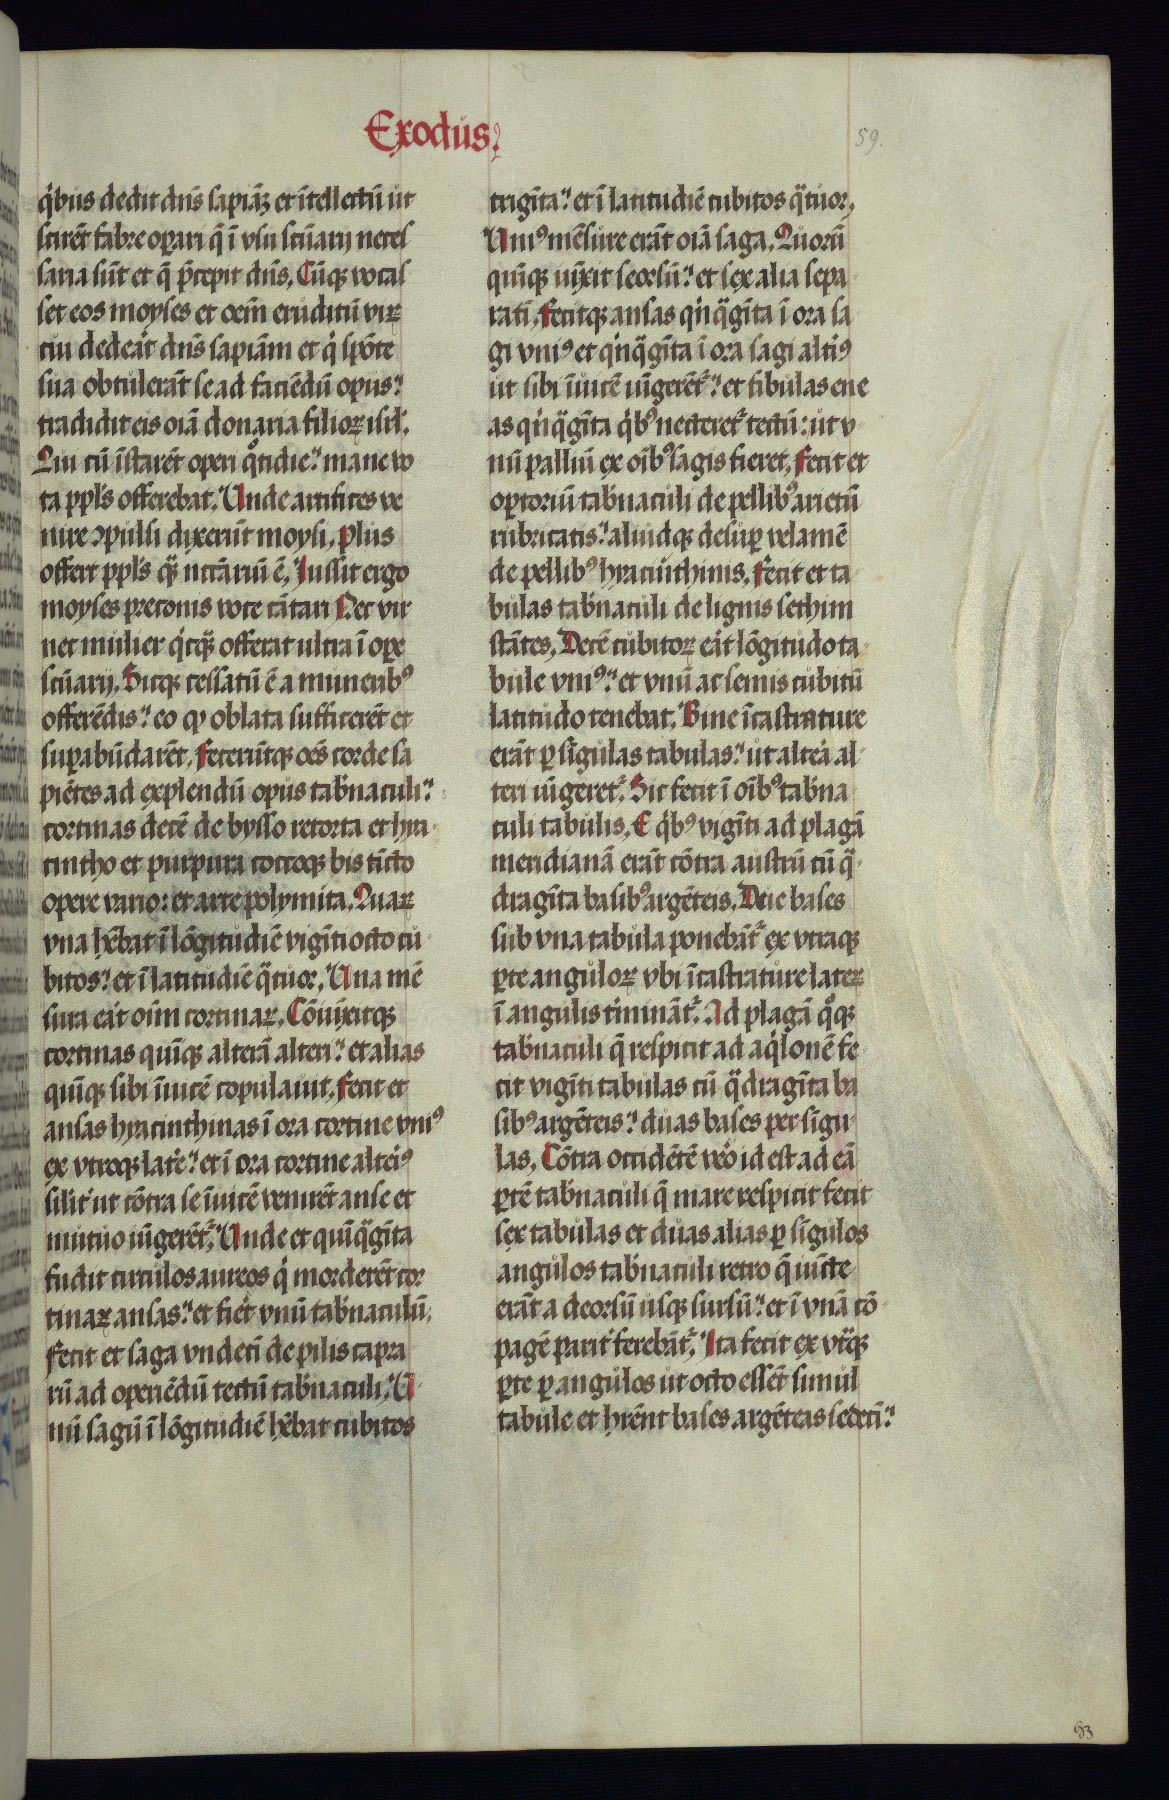 Exodus.
59.
q̇bus dedit dn̄s sapiā⁊ et ītellectū ut
scirēt fabre oꝑari q̄ ī vsū scūarij neces
saria sūt et q̄ p̄cepit dn̄s, Cūqꝫ vocas
set eos moyses et oēm eruditū virꝫ
cui dedeāt dn̄s sapiām et q̇ spōte
sua obtulerāt se ad faciēdū opus:
tradidit eis oīa donaria filioꝝ isrl̄.
Qui cū īstarēt operi q̊tidie: mane vo
ta ppl̄s offerebat. Unde artifices ve
nire ꝯpulsi dixerūt moysi, plus
offert ppl̄s qͣ̄ nccāriū ē, Iussit ergo
moyses preconis voce cātari Nec vir
nec mulier q̇cqͣ̄ offerat ultra ī oꝑe
scūarij. Sicqꝫ cessatū ē a munerib⁹
offerēdis: eo ꝙ oblata sufficerēt et
suꝑabūdarēt, feceruntqꝫ oēs corde sa
piētes ad explendū opus tab̄naculi:
cortinas decē de bysso retorta et hya
cintho et purpura coccoqꝫ bis tīcto
opere vario: et arte polymita. Quaꝝ
vna hēbat ī lōgitudīe vigīti octo cu
bitos: et ī latitudīe qͣtuor, Una mē
sura eāt oīm cortinaꝝ, Cōiūxitqꝫ
cortinas quīqꝫ alterā alteri: et alias
quīqꝫ sibi īuicē copulauit, fecit et
ansas hyacinthinas ī ora cortine vni⁹
ex vtroqꝫ late̅: et ī ora cortine alteri⁹
silit̄ ut cōtra se īuicē venirēt anse et
mutuo iūgerēt᷑, Unde et quīqͣgīta
fudit circulos aureos q̇ morderēt cor
tinaꝝ ansas: et fiet̄ vnū tab̄naculū,
fecit et saga vndecī de pilis capra
rū ad operiēdū tectū tab̄naculi, U
nū sagū ī lōgitudīe hēbat cubitos
trigīta: et ī latitudīe cubitos qͣtuor,
Uni⁹ mēsure erāt oīa saga, Quorū
quīqꝫ iūxit seorsū: et sex alia sepa
ratī, fecitqꝫ ansas qı̇̄qͣgīta ī ora sa
gi vni⁹ et qı̇̄qͣgīta ī ora sagi alti⁹
ut sibi īuicē iūgerēt᷑: et fibulas ene
as qı̇̄qͣgīta q̇b⁹ necteret᷑ tectū: ut v
nū palliū ex oīb⁹ sagis fieret, fecit et
oꝑtoriū tab̄naculi de pellib⁹ arietū
rubricatis: aliudqꝫ desuꝑ velamē
de pellib⁹ hyacīthinis, fecit et ta
bulas tab̄naculi de lignis sethim
stātes, Decē cubitoꝝ eāt lōgitudo ta
bule vni⁹: et vnū ac semis cubitū
latitudo tenebat. Bine īcastrature
erāt ꝑ sīgulas tabulas: ut alteā al
teri iūgeret᷑. Sic fecit ī oīb⁹ tab̄na
culi tabulis, E q̇b⁹ vigīti ad plagā
meridianā erāt cōtra austrū cū qͣ
dragīta basib⁹ argēteis. Due bases
sub vna tabula ponebāt᷑ ex vtraqꝫ
ꝑte anguloꝝ vbi īcastrature lateꝝ
ī angulis t̄mināt᷑. Ad plagā q̊qꝫ
tab̄naculi q̄ respicit ad aq̇lonē fe
cit vigīti tabulas cū qͣdragīta ba
sib⁹ argēteis: duas bases per sīgu
las, Cōtra occidētē ve̊o id est ad eā
ꝑtē tab̄naculi q̄ mare respicit fecit
sex tabulas et duas alias ꝑ sīgulos
angulos tab̄naculi retro q̄ iūcte
erāt a deorsū usqꝫ sursū: et ī vnā cō
pagē parit̄ ferebāt᷑, Ita fecit ex vtͣqꝫ
ꝑte ꝑ angulos ut octo essēt simul
tabule et hr̄ent bases argēteas sedecī: